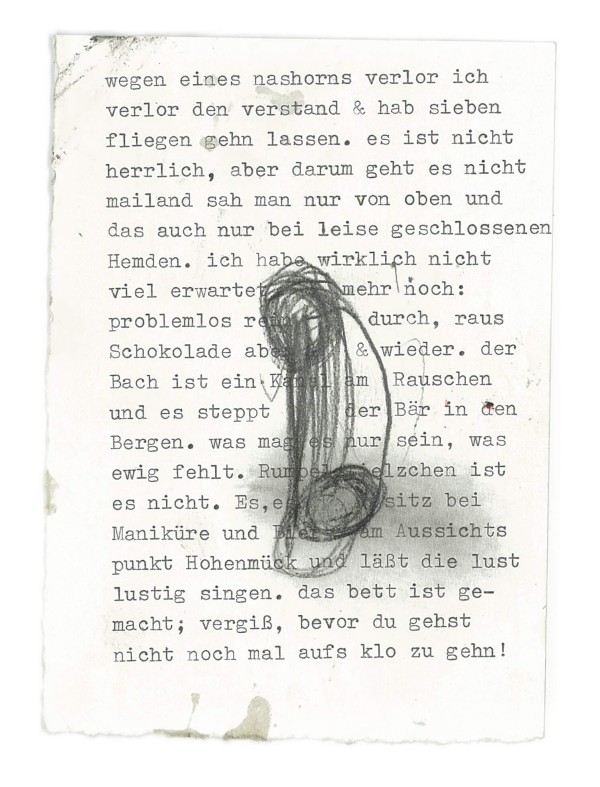 wegen eines nashorns verlor ich
verlor den verstand & hab sieben
fliegen gehn lassen. es ist nicht
herrlich, aber darum geht es nicht
mailand sah man nur von oben und
das auch nur bei leise geschlossenen
Hemden. ich habe wirklich nicht
viel erwartet mehr noch:
problemlos rein durch, raus
Schokolade & wieder. der
Bach ist ein Kanal am Rauschen
und es steppt der Bär in den
Bergen. was mag es nur sein, was
ewig fehlt. Rumpelstelzchen ist
es nicht. Es, sitz bei
Maniküre und am Aussichts
punkt Hohenmück und läßt die lust
lustig singen. das bett ist ge-
macht; vergiß, bevor du gehst
nicht noch mal aufs klo zu gehn!